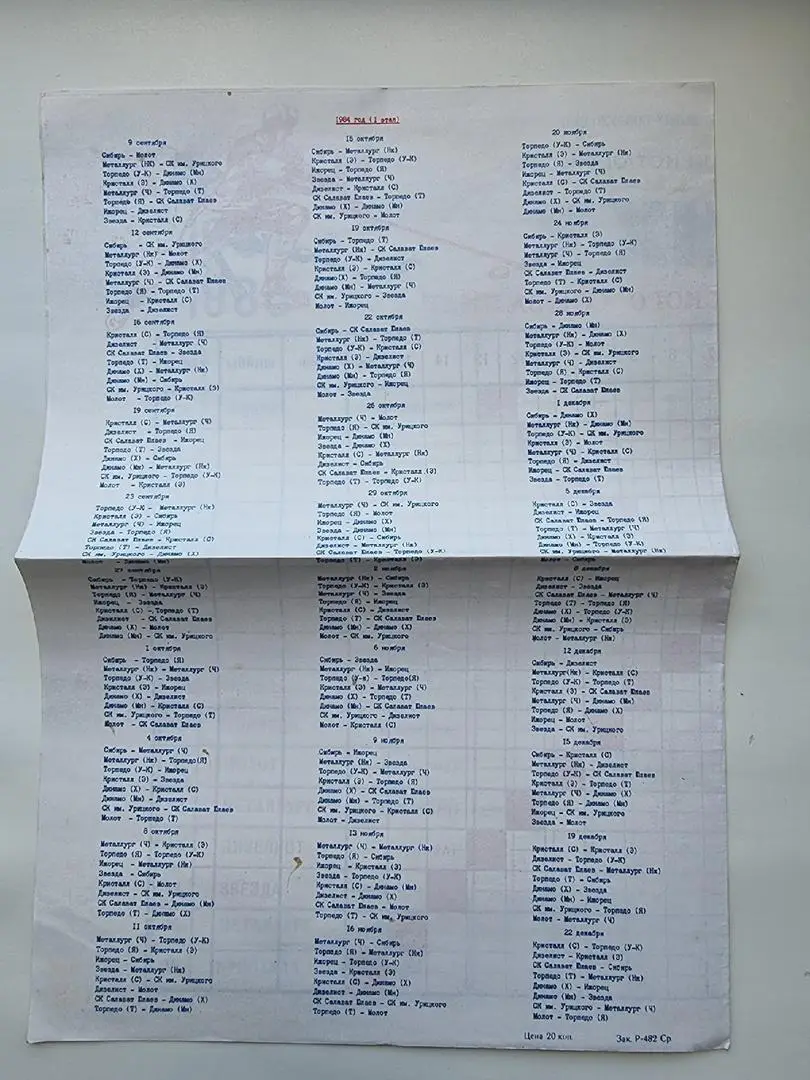 1984 год (1 этап)
9 сентября
Сибирь - Молот
Металлург (НК) - СК им. Урицкого
Торпедо (У-К) - Динамо (Мн)
Кристалл (Э) - Динамо (Х)
Металлург (Ч) - Торпедо (Т)
Торпедо (Я) - СК Салават Юлаев
Ижорец - Дизелист
Звезда - Кристалл (С)
12 сентября
Сибирь - СК им. Урицкого
Металлург (Нк) - Молот
Торпедо (У-К) - Динамо (Х)
Кристалл (Э) - Динамо (Мн)
Металлург (Ч) - СК Салават Юлаев
Торпедо (Я) - Торпедо (Т)
Ижорец - Кристалл (С)
Звезда - Дизелист
16 сентября
Кристалл (С) - Торпедо (Я)
Дизелист - Металлург (Ч)
СК Салават Юлаев - Звезда
Торпедо (Т) - Ижорец
Динамо (Х) - Металлург (Нк)
Динамо (Мн) - Сибирь
СК им. Урицкого - Кристалл (Э)
Молот - Торпедо (У-К)
19 сентября
Кристалл (С) - Металлург (Ч)
Дизелист - Торпедо (Я)
СК Салават Юлаев - Ижорец
Торпедо (Т) - Звезда
Динамо (Х) - Сибирь
Динамо (Мн) - Металлург (Нк)
СК им. Урицкого - Торпедо (У-К)
Молот - Кристалл (Э)
23 сентября
Торпедо (У-К) - Металлург (Нк)
Кристалл (Э) - Сибирь
Металлург (Ч) - Ижорец
Звезда - Торпедо (Я)
СК Салават Юлаев - Кристалл (С)
Торпедо (Т) - Дизелист
СК им. Урицкого - Динамо (Х)
Молот - Динамо (Мн)
27 сентября
Сибирь - Торпедо (У-К)
Металлург (Нк) - Кристалл (Э)
Торпедо (Я) - Металлург (Ч)
Ижорец - Звезда
Кристалл (С) - Торпедо (Т)
Дизелист - СК Салават Юлаев
Динамо (Х) - Молот
Динамо (Мн) - СК им. Урицкого
1 октября
Сибирь - Торпедо (Я)
Металлург (Нк) - Металлург (Ч)
Торпедо (У-К) - Звезда
Кристалл (Э) - Ижорец
Динамо (Х) - Дизелист
Динамо (Мн) - Кристалл (С)
СК им. Урицкого - Торпедо (Т)
Молот - СК Салават Юлаев
4 октября
Сибирь - Металлург (Ч)
Металлург (Нк) - Торпедо(Я)
Торпедо (У-К) - Ижорец
Кристалл (Э) - Звезда
Динамо (Х) - Кристалл (С)
Динамо (Мн) - Дизелист
СК им. Урицкого - СК Салават Юлаев
Молот - Торпедо (Т)
8 октября
Металлург (Ч) - Кристалл (Э)
Торпедо (Я) - Торпедо (У-К)
Ижорец - Металлург (Нк)
Звезда - Сибирь
Кристалл (С) - Молот
Дизелист - СК им. Урицкого
СК Салават Юлаев - Динамо (Мн)
Торпедо (Т) - Динамо (Х)
11 октября
Металлург (Ч) - Торпедо (У-К)
Торпедо (Я) - Кристалл (Э)
Ижорец - Сибирь
Звезда - Металлург (Нк)
Кристалл (С) - СК им. Урицкого
Дизелист - Молот
СК Салават Юлаев - Динамо (Х)
Торпедо (Т) - Динамо (Мн)
15 октября
Сибирь - Металлург (Нк)
Кристалл (Э) - Торпедо (У-К)
Ижорец - Торпедо (Я)
Звезда - Металлург (Ч)
Дизелист - Кристалл (С)
СК Салават Юлаев - Торпедо (Т)
Динамо (Х) - Динамо (Мн)
СК им. Урицкого - Молот
19 октября
Сибирь - Торпедо (Т)
Металлург (Нк) - СК Салават Юлаев
Торпедо (У-К) - Дизелист
Кристалл (Э) - Кристалл (С)
Динамо(Х) - Торпедо (Я)
Динамо (Мн) - Металлург (Ч)
СК им. Урицкого - Звезда
Молот - Ижорец
22 октября
Сибирь - СК Салават Юлаев
Металлург (Нк) - Торпедо (Т)
Торпедо (У-К) - Кристалл (С)
Кристалл (Э) - Дизелист
Динамо (Х) - Металлург (Ч)
Динамо (Мн) - Торпедо (Я)
СК им. Урицкого - Ижорец
Молот - Звезда
26 октября
Металлург (Ч) - Молот
Торпедо (Я) - СК им. Урицкого
Ижорец - Динамо (Мн)
Звезда - Динамо (Х)
Кристалл (С) - Металлург (Нк)
Дизелист - Сибирь
СК Салават Юлаев - Кристалл (Э)
Торпедо (Т) - Торпедо (У-К)
29 октября
Металлург (Ч) - СК им. Урицкого
Торпедо (Я) - Молот
Ижорец - Динамо (Х)
Звезда - Динамо (Мн)
Кристалл (С) - Сибирь
Дизелист - Металлург (Нк)
СК Салават Юлаев - Торпедо (У-К)
Торпедо (Т) - Кристалл (Э)
2 ноября
Металлург (Нк) - Сибирь
Торпедо (У-К) - Кристалл (Э)
Металлург (Ч) - Звезда
Торпедо (Я) - Ижорец
Кристалл (С) - Дизелист
Торпедо (Т) - СК Салават Юлаев
Динамо (Мн) - Динамо (Х)
Молот - СК им. Урицкого
6 ноября
Сибирь - Звезда
Металлург (Нк) - Ижорец
Торпедо (У-К) - Торпедо(Я)
Кристалл (Э) - Металлург (Ч)
Динамо (Х) - Торпедо (Т)
Динамо (Мн) - СК Салават Юлаев
СК им. Урицкого - Дизелист
Молот - Кристалл (С)
9 ноября
Сибирь - Ижорец
Металлург (Нк) - Звезда
Торпедо (У-К) - Металлург (Ч)
Кристалл (Э) - Торпедо (Я)
Динамо (Х) - СК Салават Юлаев
Динамо (Мн) - Торпедо (Т)
СК им. Урицкого - Кристалл (С)
Молот - Дизелист
13 ноября
Металлург (Ч) - Металлург (Нк)
Торпедо (Я) - Сибирь
Ижорец - Кристалл (Э)
Звезда - Торпедо (У-К)
Кристалл (С) - Динамо (Мн)
Дизелист - Динамо (Х)
СК Салават Юлаев - Молот
Торпедо (Т) - СК им. Урицкого
16 ноября
Металлург (Ч) - Сибирь
Торпедо (Я) - Металлург (Нк)
Ижорец - Торпедо (У-К)
Звезда - Кристалл (Э)
Кристалл (С) - Динамо (Х)
Дизелист - Динамо (Мн)
СК Салават Юлаев - СК им. Урицкого
Торпедо (Т) - Молот
20 ноября
Торпедо (У-К) - Сибирь
Кристалл (Э) - Металлург (Нк)
Торпедо (Я) - Звезда
Ижорец - Металлург (Ч)
Кристалл (С) - СК Салават Юлаев
Дизелист - Торпедо (Т)
Динамо (Х) - СК им. Урицкого
Динамо (Мн) - Молот
24 ноября
Сибирь - Кристалл (Э)
Металлург (Нк) - Торпедо (У-К)
Металлург (Ч) - Торпедо (Я)
Звезда - Ижорец
СК Салават Юлаев - Дизелист
Торпедо (Т) - Кристалл (С)
СК им. Урицкого - Динамо (Мн)
Молот - Динамо (Х)
28 ноября
Сибирь - Динамо (Мн)
Металлург (Нк) - Динамо (Х)
Торпедо (У-К) - Молот
Кристалл (Э) - СК им. Урицкого
Металлург (Ч) - Дизелист
Торпедо (Я) - Кристалл (С)
Ижорец - Торпедо (Т)
Звезда - СК Салават Юлаев
1 декабря
Сибирь - Динамо (Х)
Металлург (Нк) - Динамо (Мн)
Торпедо (У-К) - СК им. Урицкого
Кристалл (Э) - Молот
Металлург (Ч) - Кристалл (С)
Торпедо (Я) - Дизелист
Ижорец - СК Салават Юлаев
Звезда - Торпедо (Т)
5 декабря
Кристалл (С) - Звезда
Дизелист - Ижорец
СК Салават Юлаев - Торпедо (Я)
Торпедо (Т) - Металлург (Ч)
Динамо (Х) - Кристалл (Э)
Динамо (Мн) - Торпедо (У-К)
СК им. Урицкого - Металлург (Нк)
8 декабря
Кристалл (С) - Ижорец
Дизелист - Звезда
СК Салават Юлаев - Металлург (Ч)
Торпедо (Т) - Торпедо (Я)
Динамо (Х) - Торпедо (У-К)
Динамо (Мн) - Кристалл (Э)
СК им. Урицкого - Сибирь
Молот - Металлург (Нк)
12 декабря
Сибирь - Дизелист
Металлург(Нк) - Кристалл (С)
Торпедо (У-К) - Торпедо (Т)
Кристалл (Э) - СК Салават Юлаев
Металлург (Ч) - Динамо (Мн)
Торпедо (Я) - Динамо (Х)
Ижорец - Молот
Звезда - СК им. Урицкого
15 декабря
Сибирь - Кристалл (С)
Металлург (Нк) - Дизелист
Торпедо (У-К) - СК Салават Юлаев
Кристалл (Э) - Торпедо (Т)
Металлург (Ч) - Динамо (Х)
Торпедо (Я) - Динамо (Мн)
Ижорец - СК им. Урицкого
Звезда - Молот
19 декабря
Кристалл (С) - Кристалл (Э)
Дизелист - Торпедо (У-К)
СК Салават Юлаев - Металлург (Нк)
Торпедо (Т) - Сибирь
Динамо (Х) - Звезда
Динамо (Мн) - Ижорец
СК им. Урицкого - Торпедо (Я)
Молот - Металлург (Ч)
22 декабря
Кристалл (С) - Торпедо (У-К)
Дизелист - Кристалл (Э)
СК Салават Юлаев - Сибирь
Торпедо (Т) - Металлург (Нк)
Динамо (Х) - Ижорец
Динамо (Мн) - Звезда
СК им. Урицкого - Металлург (Ч)
Молот - Торпедо (Я)
Цена 20 коп. Зак. Р-482 Ср